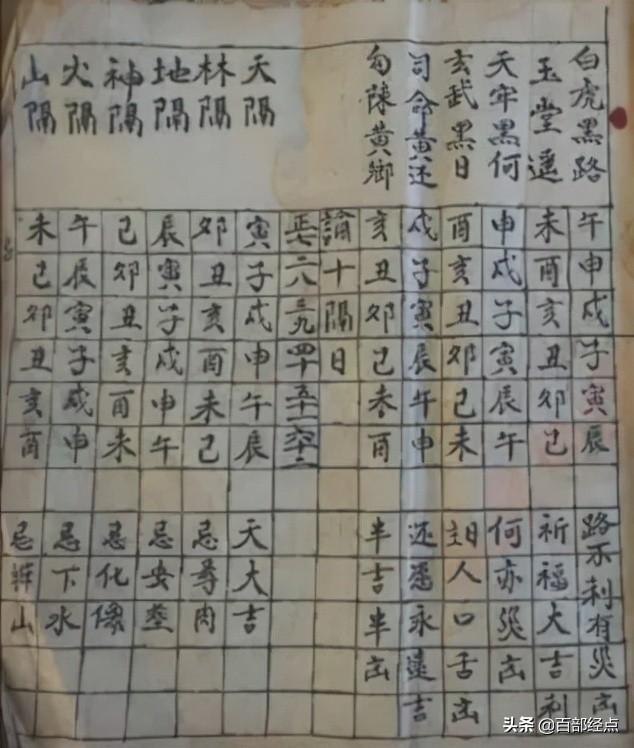 白虎黑路午申戌子寅辰路不利有災凶
玉堂遥未酉亥丑卯己祈福大吉利
天牢黑何申戌子寅辰午何亦災凶
玄武黑日酉亥丑卯己未日人口舌凶
司命黄还戌子寅辰午申还愿永遠吉
勾陳黄鄉亥丑卯己酉半吉半凶
論十隔日
正七二八三九四十五十一六十二
天隔寅子戌申午辰天大吉
林隔卯丑亥酉未己忌尋肉
地隔辰寅子戌申午忌安
神隔己卯丑亥酉未忌化像
火隔午辰寅子戌申忌下水
山隔未己卯丑亥酉忌山
头条 @百部经点